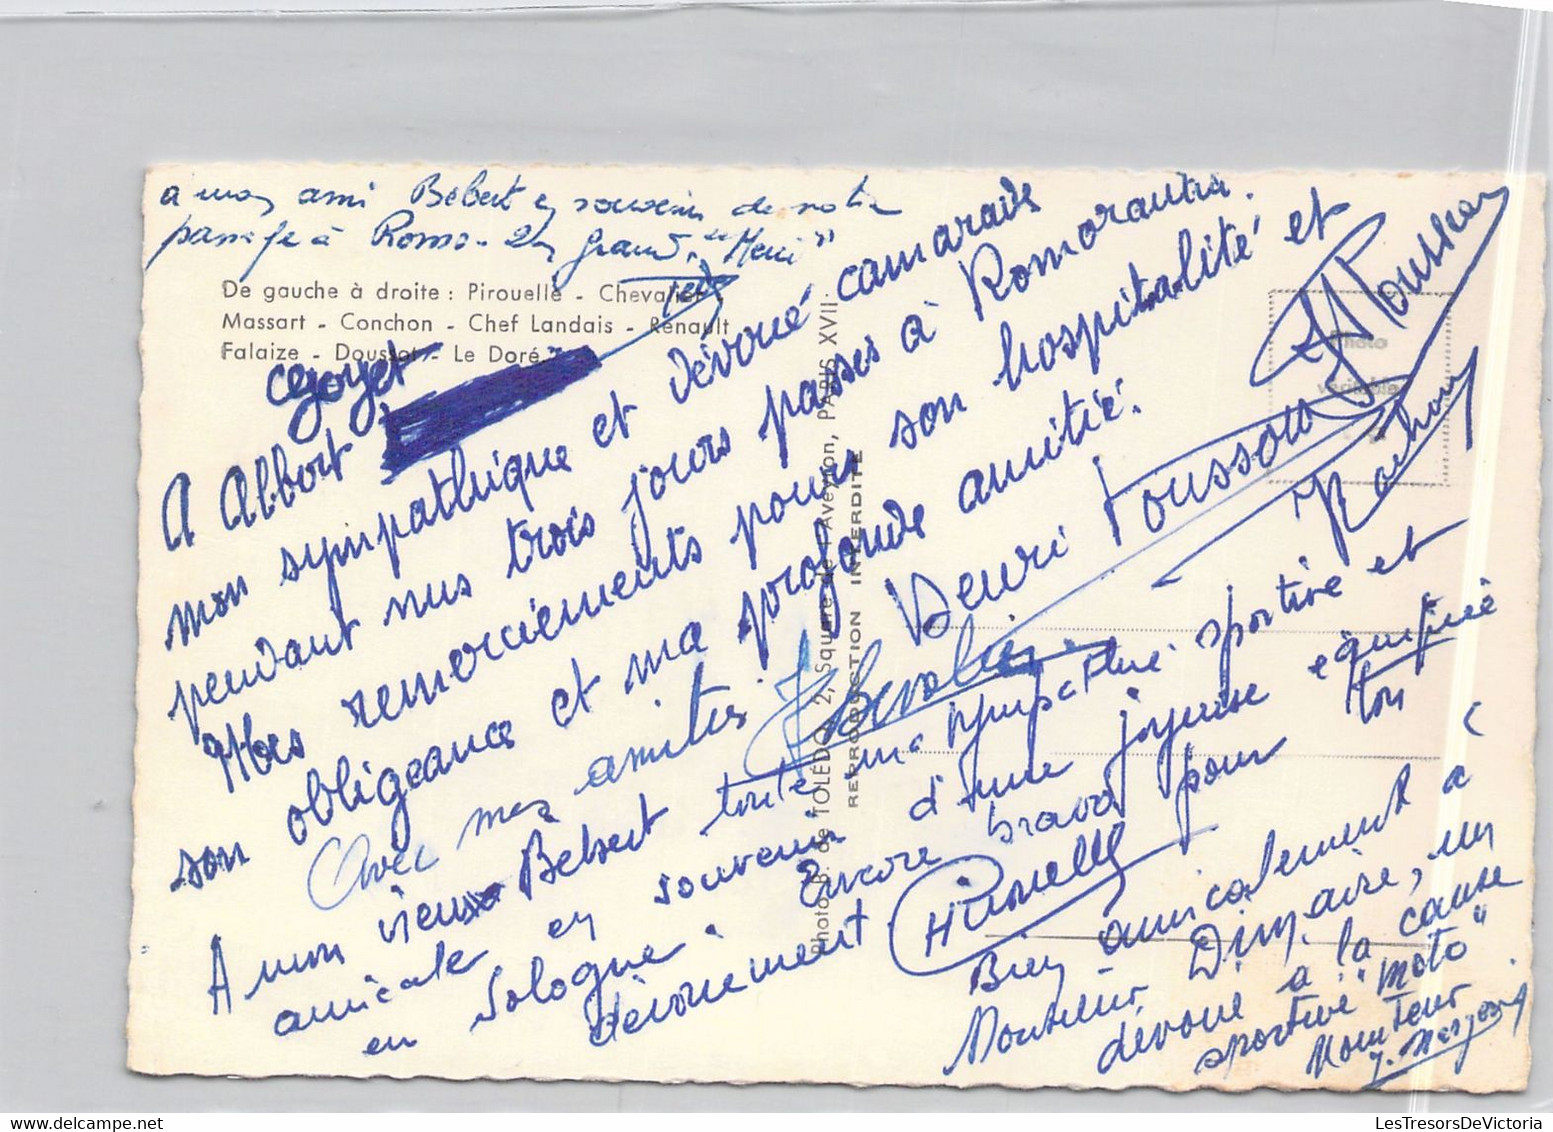 a mon ami Bebert en souvenir de notre
passage à Romo - Un grand "Merci"
De gauche à droite : Pirouelle - Chevalier -
Massart - Conchon - Chef Landais - Renault
Falaize - Doussot - Le Doré
A Albert
mon sympathique et dévoué camarade
pendant nus trois jours passés à Romorantin.
Mes remerciements pour son hospitalité et
son obligeance et ma profonde amitié.
Henri Toussaint
Avec mes amitiés
Chevalier
A mon vieux Bebert toute ma sympathie sportive et
amicale en souvenir d'une joyeuse équipée
en Sologne. Encore bravo pour ton
dévouement
H Pirouelle
Bien amicalement à
Monsieur Dimpaire, un
dévoué à la cause
sportive "Moto"
Moniteur
Photo J. de TOLÉDO, 2, Square de l'Aveyron, PARIS XVII.
REPRODUCTION INTERDITE
Photo
véritable
LesTresorsDeVictoria